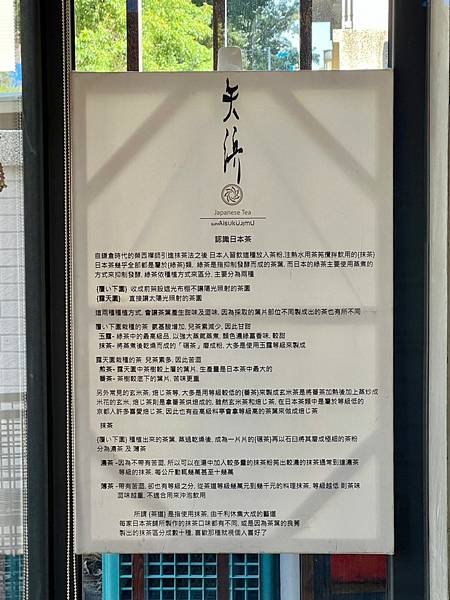 矢浜
Japanese Tea
認識日本茶
自鎌倉時代的榮西禪師引進抹茶法之後 日本人習飲這種放入茶粉,注熱水用茶筅攪拌飲用的(抹茶)
日本茶幾乎全部都是屬於(綠茶)類, 綠茶是指抑制發酵而成的茶葉, 而日本的綠茶主要使用蒸煮的
方式來抑制發酵, 綠茶依種植方式來區分, 主要分為兩種
(覆い下園) 收成前架設遮光布棚不讓陽光照射的茶園
(露天園) 直接讓太陽光照射的茶園
這兩種種植方式, 會讓茶葉產生甜味及澀味, 因為採取的葉片部位不同製成出的茶也有所不同
覆い下園栽種的茶 氨基酸增加, 兒茶素減少, 因此甘甜
玉露- 綠茶中的最高級品, 以強大蒸氣蒸煮, 顏色濃綠富香味, 較甜
抹茶- 將蒸煮後乾燥而成的「碾茶」磨成粉, 大多是使用玉露等級來製成
露天園栽種的茶 兒茶素多, 因此苦澀
煎茶- 露天園中茶樹較上層的葉片, 生產量是日本茶中最大的
番茶- 茶樹較底下的葉片, 苦味更重
另外常見的玄米茶, 焙じ茶等, 大多是用等級較低的(番茶)來製成玄米茶是將番茶加熱後加上蒸炒成
米花的玄米, 焙じ茶則是拿番茶烘焙成的, 雖然玄米茶和焙じ茶, 在日本茶類中是屬於等級低的
京都人許多喜愛焙じ茶, 因此也有些高級料亭會拿等級高的茶葉來做成焙じ茶
抹茶
(覆い下園) 種植出來的茶葉, 蒸過乾燥後, 成為一片片的(碾茶)再以石臼將其磨成極細的茶粉
分為濃茶 及 薄茶
濃茶 -因為不帶有苦澀, 所以可以在湯中加入較多量的抹茶粉筅出較濃的抹茶通常到達濃茶
等級的抹茶, 每公斤動輒幾萬甚至十幾萬
薄茶 -帶有苦澀, 卻也有等級之分, 從茶道等級幾萬元到幾千元的料理抹茶, 等級越低 則茶味
澀味越重, 不適合用來沖泡飲用
所謂 (茶道) 是指使用抹茶, 由千利休集大成的藝道
每家日本茶師所製作的抹茶口味都有不同, 或是因為茶葉的良莠
製出的抹茶區分成數十種, 喜歡那種就視個人喜好了